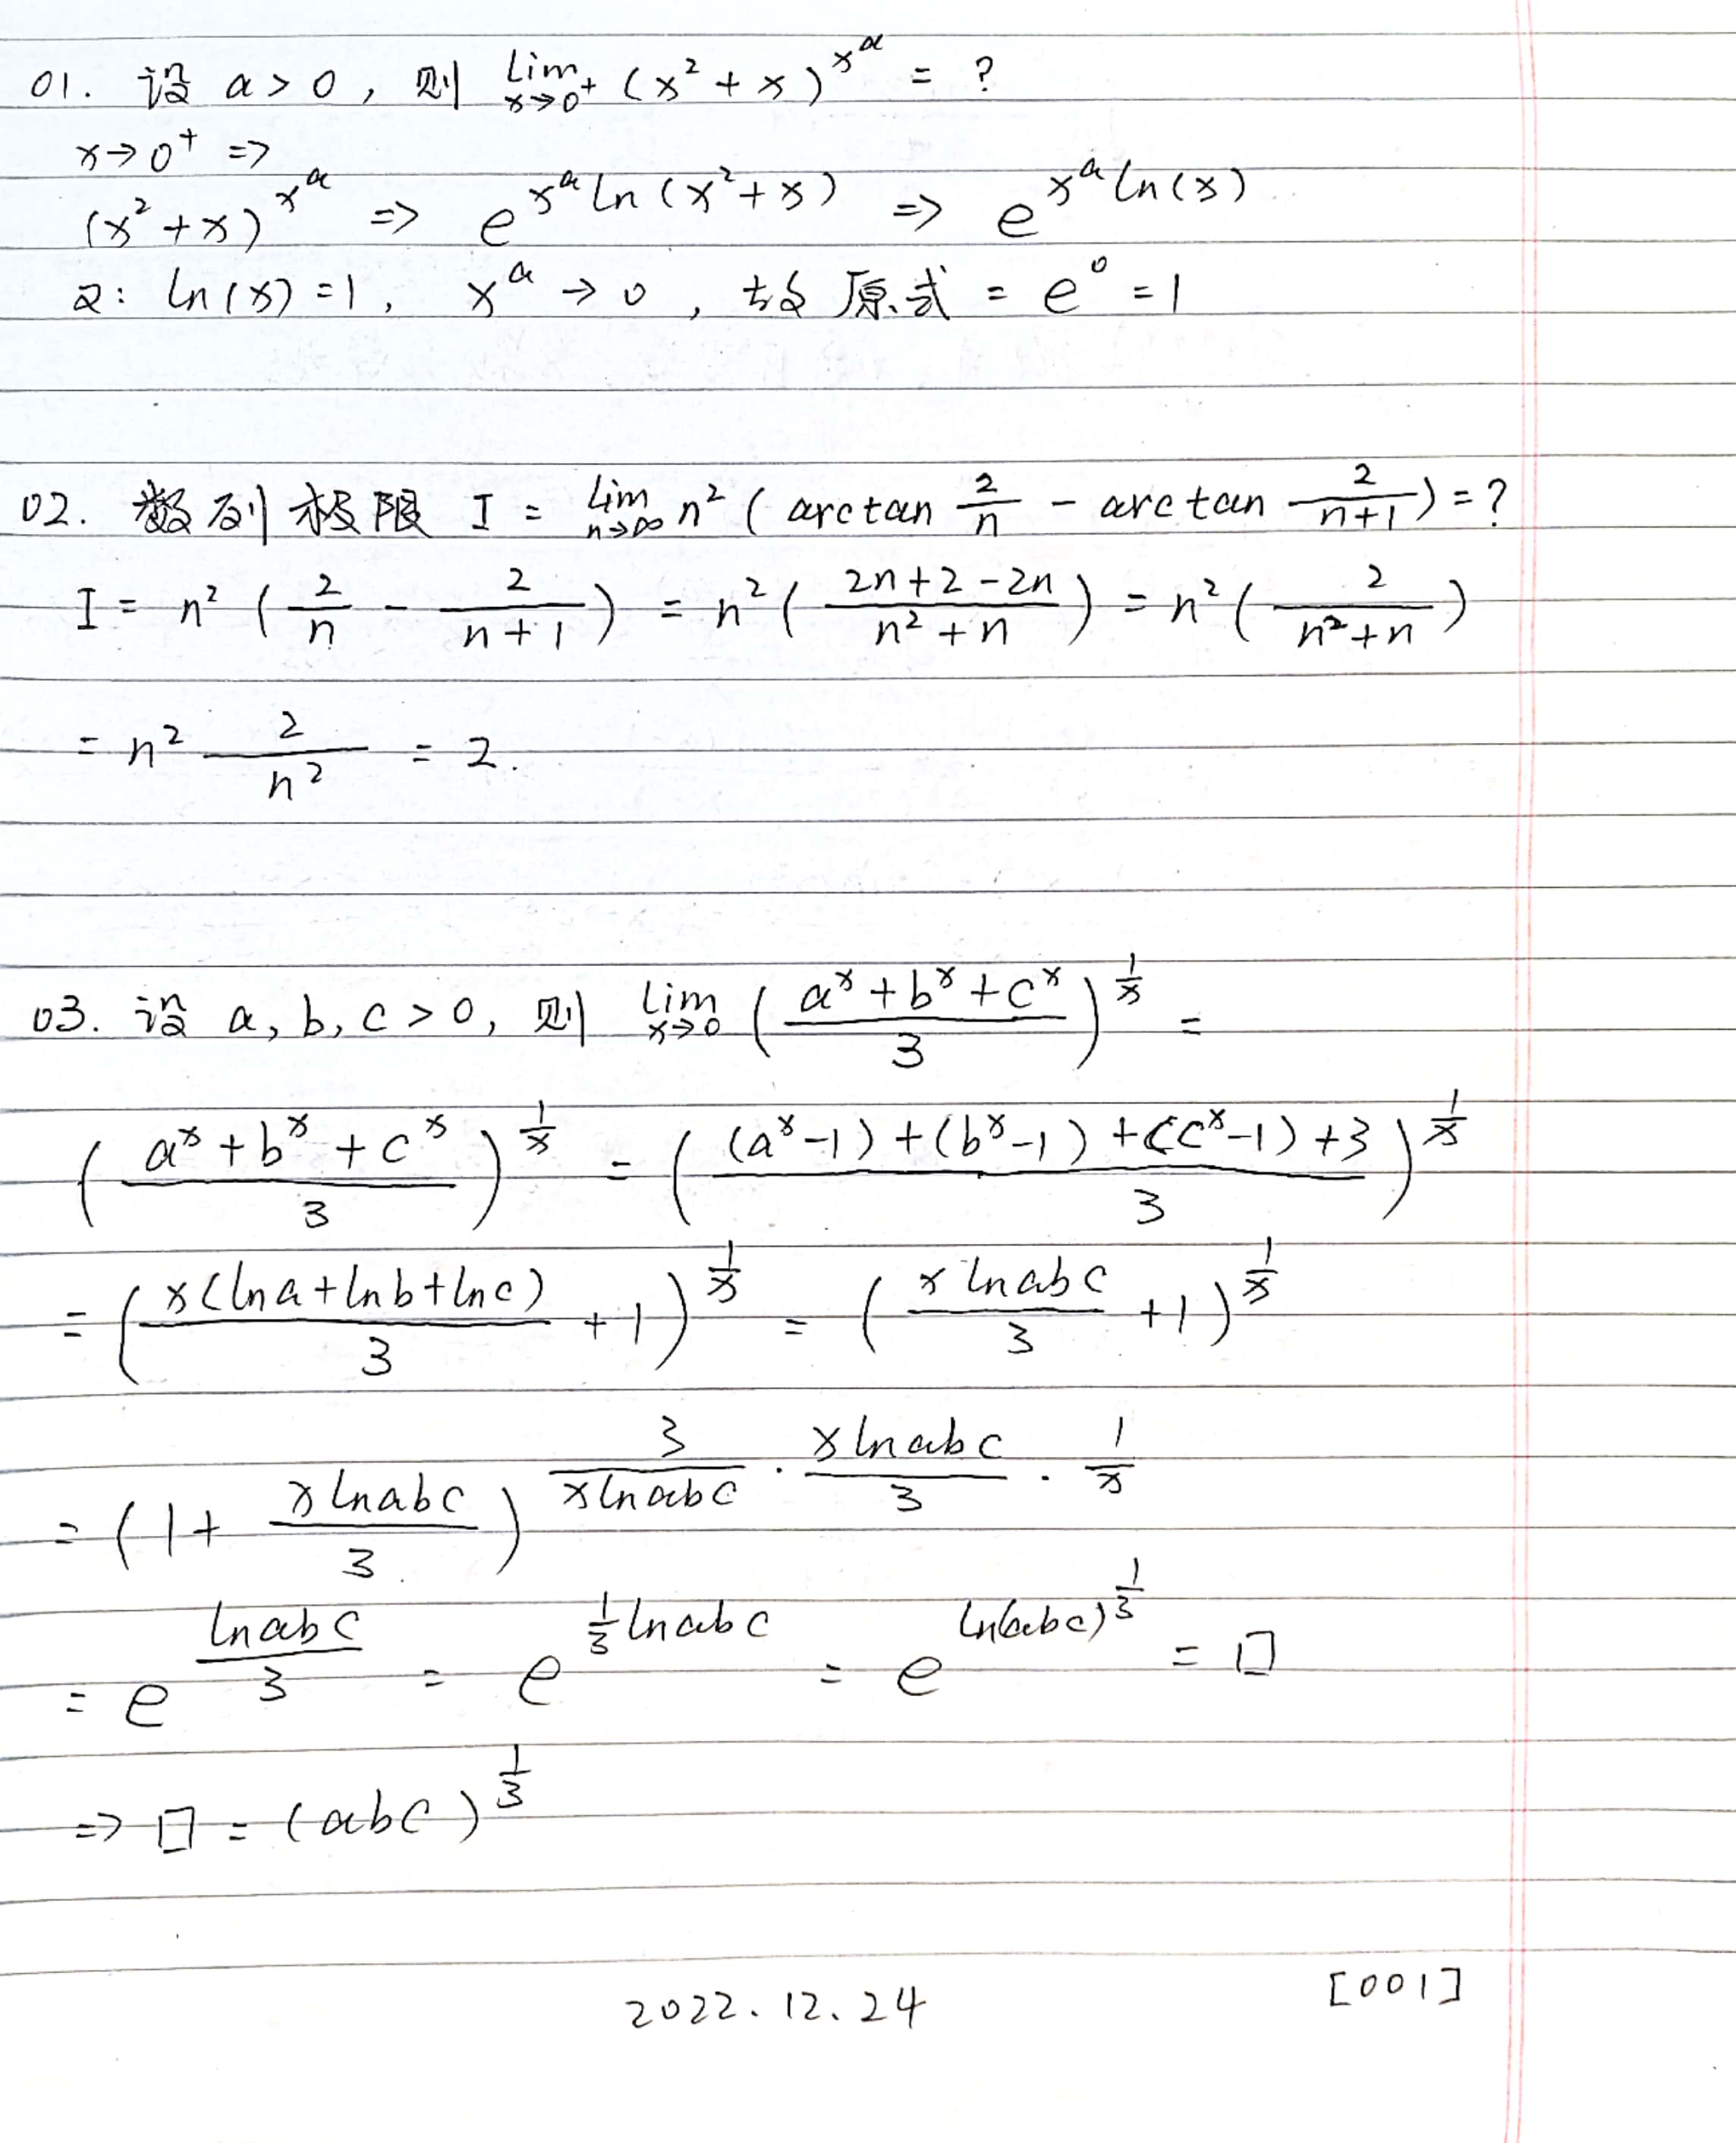 01. 设 a > 0 , 则 lim_{x→0⁺} (x² + x)^{x^a} = ?
x→0⁺ =>
(x² + x)^{x^a} => e^{x^a ln(x²+x)} => e^{x^a ln(x)}
又: ln(x) = 1, x^a → 0 , 故原式 = e⁰ = 1
02. 数列极限 I = lim_{n→∞} n² ( arctan 2/n − arctan 2/(n+1) ) = ?
I = n² ( 2/n − 2/(n+1) ) = n² ( (2n+2−2n)/(n²+n) ) = n² ( 2/(n²+n) )
= n² 2/n² = 2.
03. 设 a, b, c > 0, 则 lim_{x→0} ( (a^x + b^x + c^x)/3 )^{1/x} =
( (a^x + b^x + c^x)/3 )^{1/x} = ( ((a^x−1) + (b^x−1) + (c^x−1) + 3)/3 )^{1/x}
= ( x(lna+lnb+lnc)/3 + 1 )^{1/x} = ( x lnabc/3 + 1 )^{1/x}
= ( 1 + x lnabc/3 )^{3/(x lnabc) · x lnabc/3 · 1/x}
= e^{lnabc/3} = e^{1/3 lnabc} = e^{ln(abc)^{1/3}} = □
=> □ = (abc)^{1/3}
2022.12.24
[001]